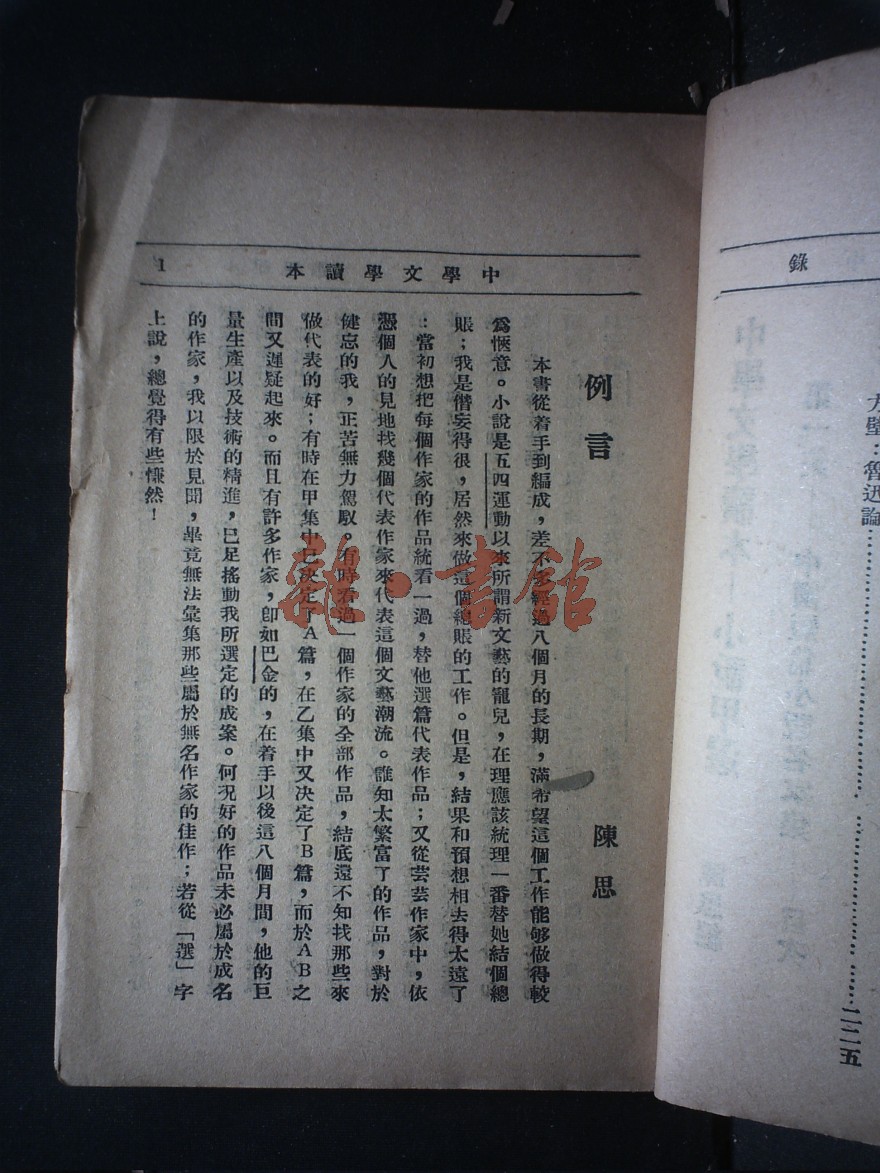 錄
方璧：魯迅論……二二五
中學文學讀本
1
例言
陳思
本書從着手到編成，差不多經過八個月的長期，滿希望這個工作能够做得較
爲愜意。小說是五四運動以來所謂新文藝的寵兒，在理應該統理一番替她結個總
賬；我是僭妄得很，居然來做這個總賬的工作。但是，結果和預想相去得太遠了
：當初想把每個作家的作品統看一過，替他選篇代表作品；又從芸芸作家中，依
憑個人的見地找幾個代表作家來代表這個文藝潮流。誰知太繁富了的作品，對於
健忘的我，正苦無力駕馭。有時看過一個作家的全部作品，結底還不知找那些來
做代表的好；有時在甲集中已決定了A篇，在乙集中又決定了B篇，而於AB之
間又遲疑起來。而且有許多作家，卽如巴金的，在着手以後這八個月間，他的巨
量生產以及技術的精進，已足搖動我所選定的成案。何况好的作品未必屬於成名
的作家，我以限於見聞，畢竟無法彙集那些屬於無名作家的佳作；若從「選」字
上說，總覺得有些慊然！
雜·書館